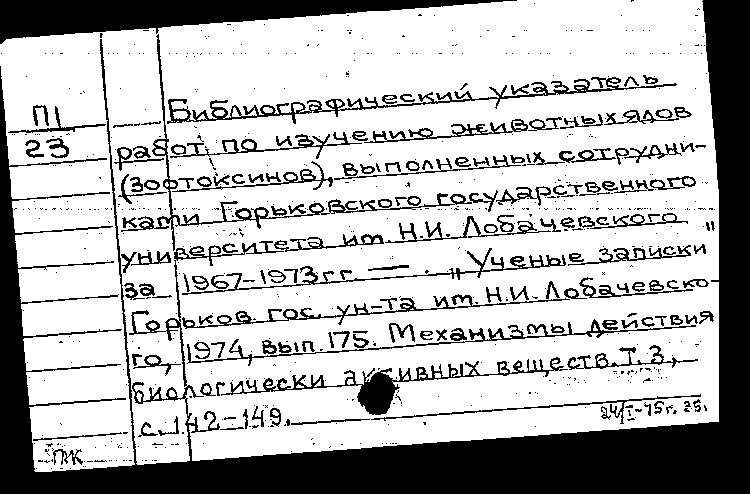 П1
23
Библиографический указатель
работ по изучению животных ядов
(зоотоксинов), выполненных сотрудни-
ками Горьковского государственного
университета им. Н.И. Лобачевского
за 1967-1973 гг. — . „Ученые записки"
Горьков. гос. ун-та им. Н.И. Лобачевско-
го, 1974, вып. 175. Механизмы действия
биологически активных веществ. Т. 3,
с. 142-149.
24/I-75г. 35.
ПК